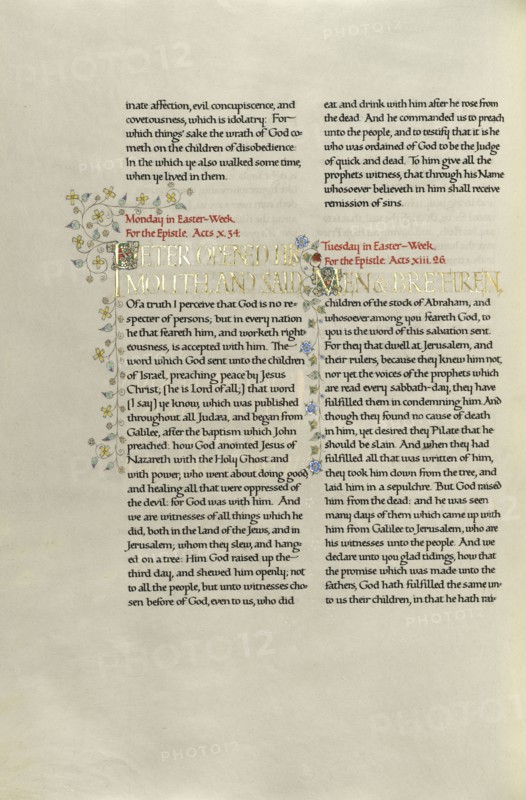 inate affection, evil concupiscence, and
covetousness, which is idolatry: For
which things' sake the wrath of God co-
meth on the children of disobedience:
In the which ye also walked some time,
when ye lived in them.
Monday in Easter-Week.
For the Epistle. Acts x. 34.
PETER OPENED HIS
MOUTH, AND SAID,
Of a truth I perceive that God is no re-
specter of persons; but in every nation
he that feareth him, and worketh right-
eousness, is accepted with him. The
word which God sent unto the children
of Israel, preaching peace by Jesus
Christ; (he is Lord of all;) that word
(I say) ye know, which was published
throughout all Judæa, and began from
Galilee, after the baptism which John
preached: how God anointed Jesus of
Nazareth with the Holy Ghost and
with power; who went about doing good
and healing all that were oppressed of
the devil: for God was with him. And
we are witnesses of all things which he
did, both in the Land of the Jews, and in
Jerusalem; whom they slew, and hang-
ed on a tree: Him God raised up the
third day, and shewed him openly; not
to all the people, but unto witnesses cho-
sen before of God, even to us, who did
eat and drink with him after he rose from
the dead. And he commanded us to preach
unto the people, and to testify that it is he
who was ordained of God to be the Judge
of quick and dead. To him give all the
prophets witness, that through his Name
whosoever believeth in him shall receive
remission of sins.
Tuesday in Easter-Week.
For the Epistle. Acts xiii. 26.
MEN & BRETHREN,
children of the stock of Abraham, and
whosoever among you feareth God, to
you is the word of this salvation sent.
For they that dwell at Jerusalem, and
their rulers, because they knew him not,
nor yet the voices of the prophets which
are read every sabbath-day, they have
fulfilled them in condemning him. And
though they found no cause of death
in him, yet desired they Pilate that he
should be slain. And when they had
fulfilled all that was written of him,
they took him down from the tree, and
laid him in a sepulchre. But God raised
him from the dead: and he was seen
many days of them which came up with
him from Galilee to Jerusalem, who are
his witnesses unto the people. And we
declare unto you glad tidings, how that
the promise which was made unto the
fathers, God hath fulfilled the same un-
to us their children, in that he hath rai-
PHOTO12